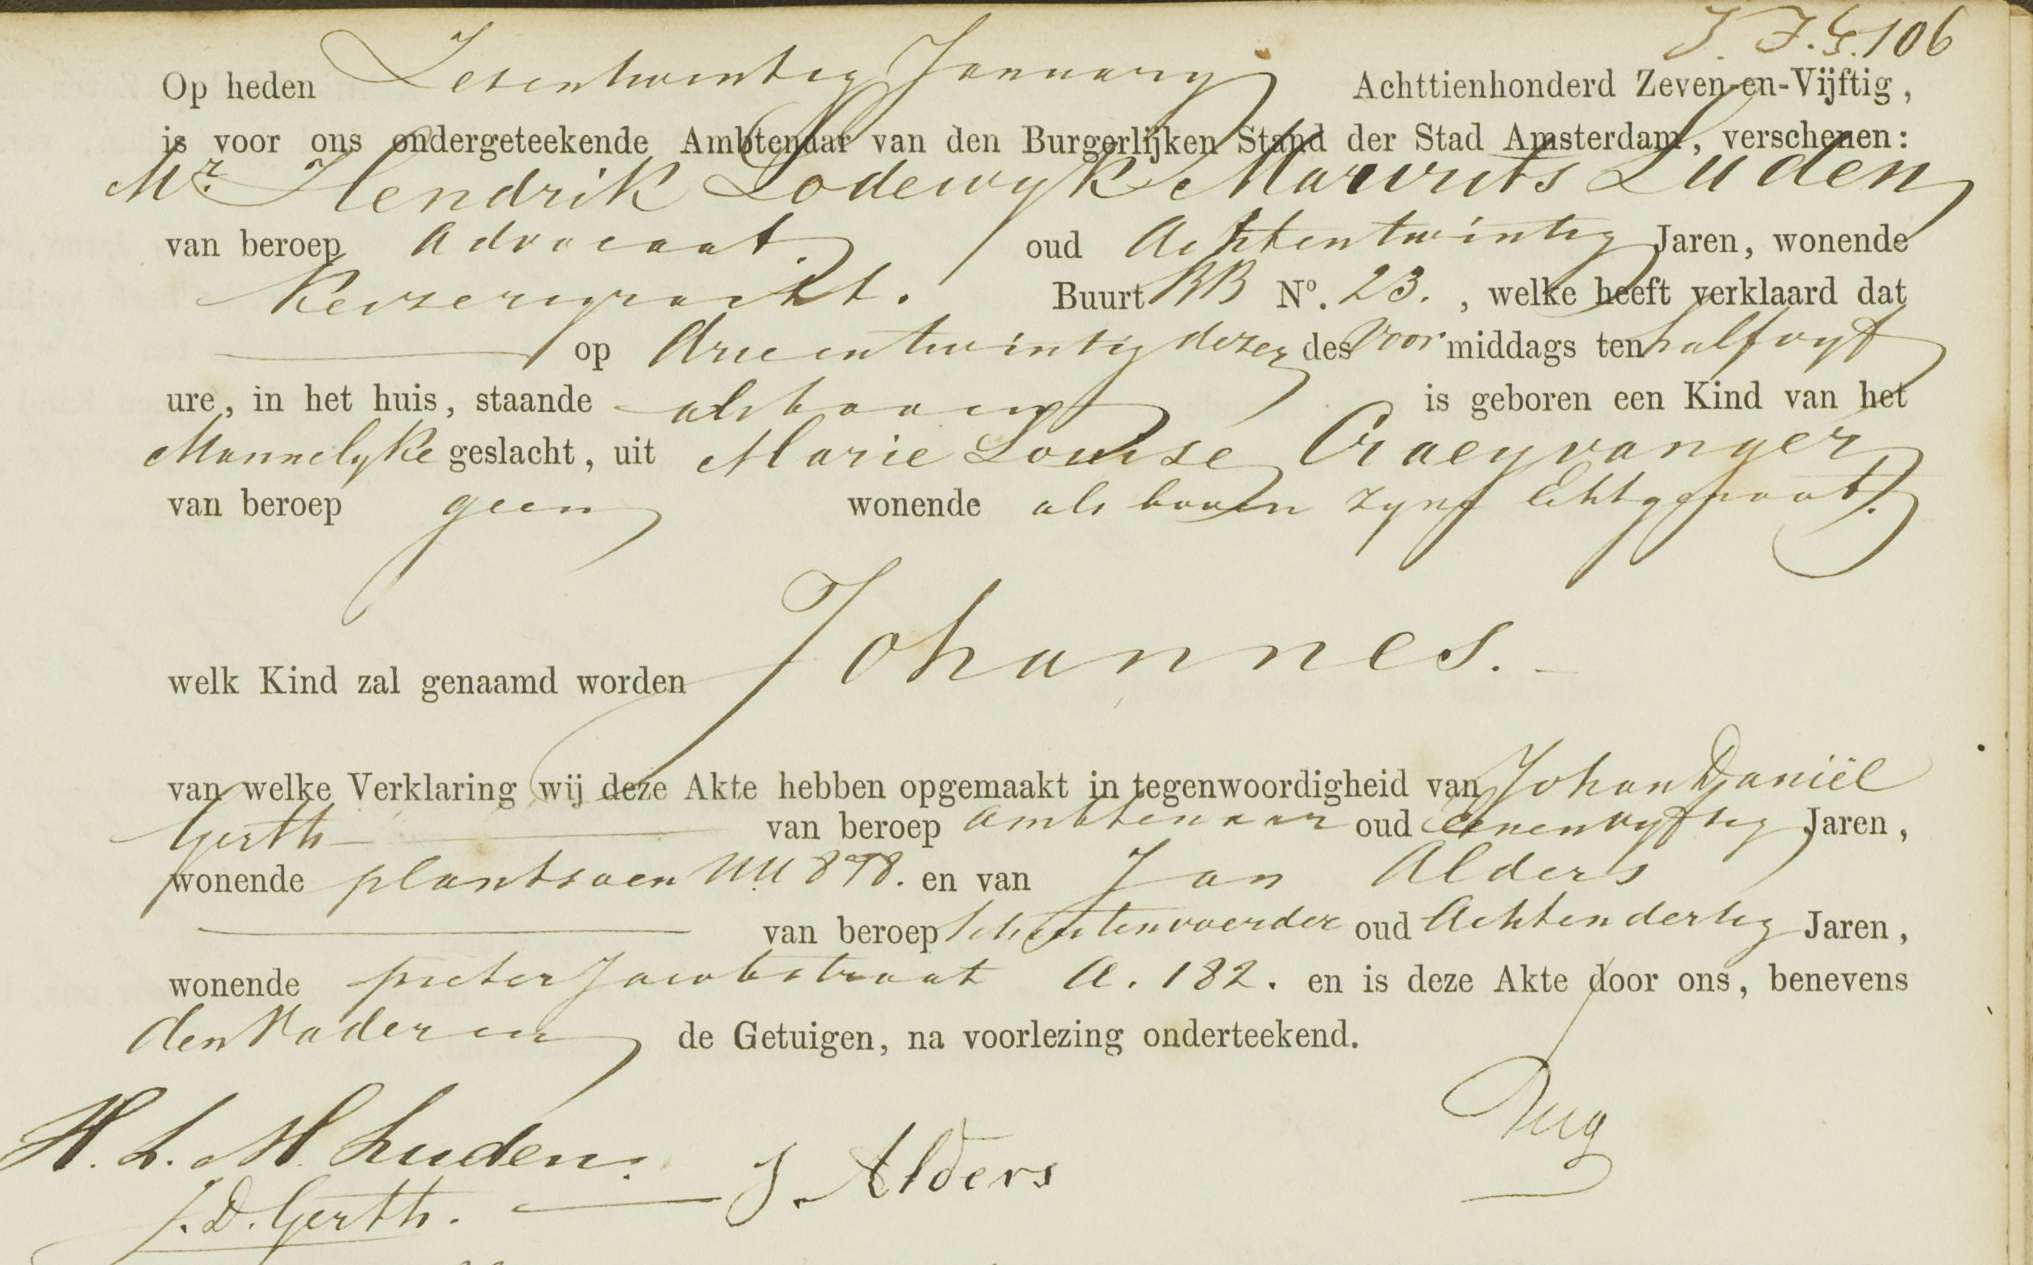 106
Op heden Zesentwintig January Achttienhonderd Zeven-en-Vijftig,
is voor ons ondergeteekende Ambtenaar van den Burgerlijken Stand der Stad Amsterdam, verschenen:
Mr. Hendrik Lodewyk Maurits Luden
van beroep Advocaat. oud Achtentwintig Jaren, wonende
Keizersgracht. Buurt BB No. 23. , welke heeft verklaard dat
op drieentwintig dezer des Voormiddags ten half vyf
ure, in het huis, staande als boven is geboren een Kind van het
Mannelyke geslacht, uit Marie Louise Craeyvanger
van beroep geen wonende als boven zyne Echtgenoot.
welk Kind zal genaamd worden Johannes.
van welke Verklaring wij deze Akte hebben opgemaakt in tegenwoordigheid van Johan Daniël
Gerth van beroep Ambtenaar oud Eenenvyftig Jaren,
wonende plantsoen UU 898. en van Jan Alders
van beroep schuitenvoerder oud Achtendertig Jaren,
wonende pieter Jacobstraat A. 182. en is deze Akte door ons, benevens
den Vader en de Getuigen, na voorlezing onderteekend.
H. L. M. Luden.
J. D. Gerth. J. Alders